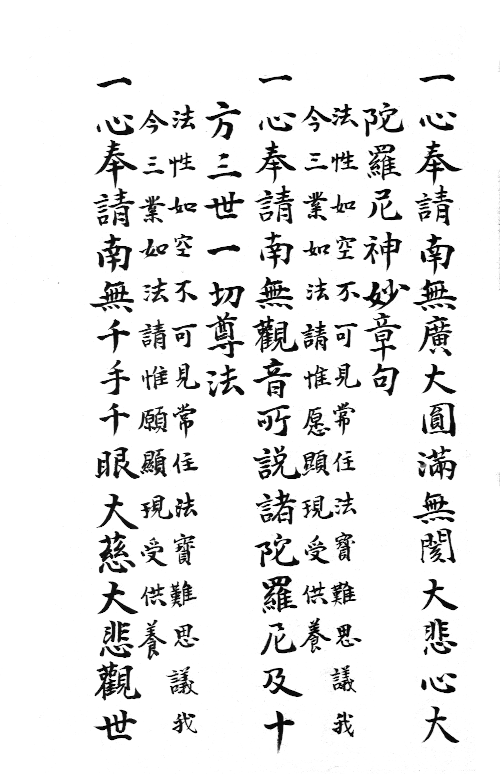 一心奉請南無廣大圓滿無閡大悲心大
陀羅尼神妙章句
法性如空不可見常住法寶難思議我
今三業如法請惟愿顯現受供養
一心奉請南無觀音所説諸陀羅尼及十
方三世一切尊法
法性如空不可見常住法寶難思議我
今三業如法請惟願顯現受供養
一心奉請南無千手千眼大慈大悲觀世